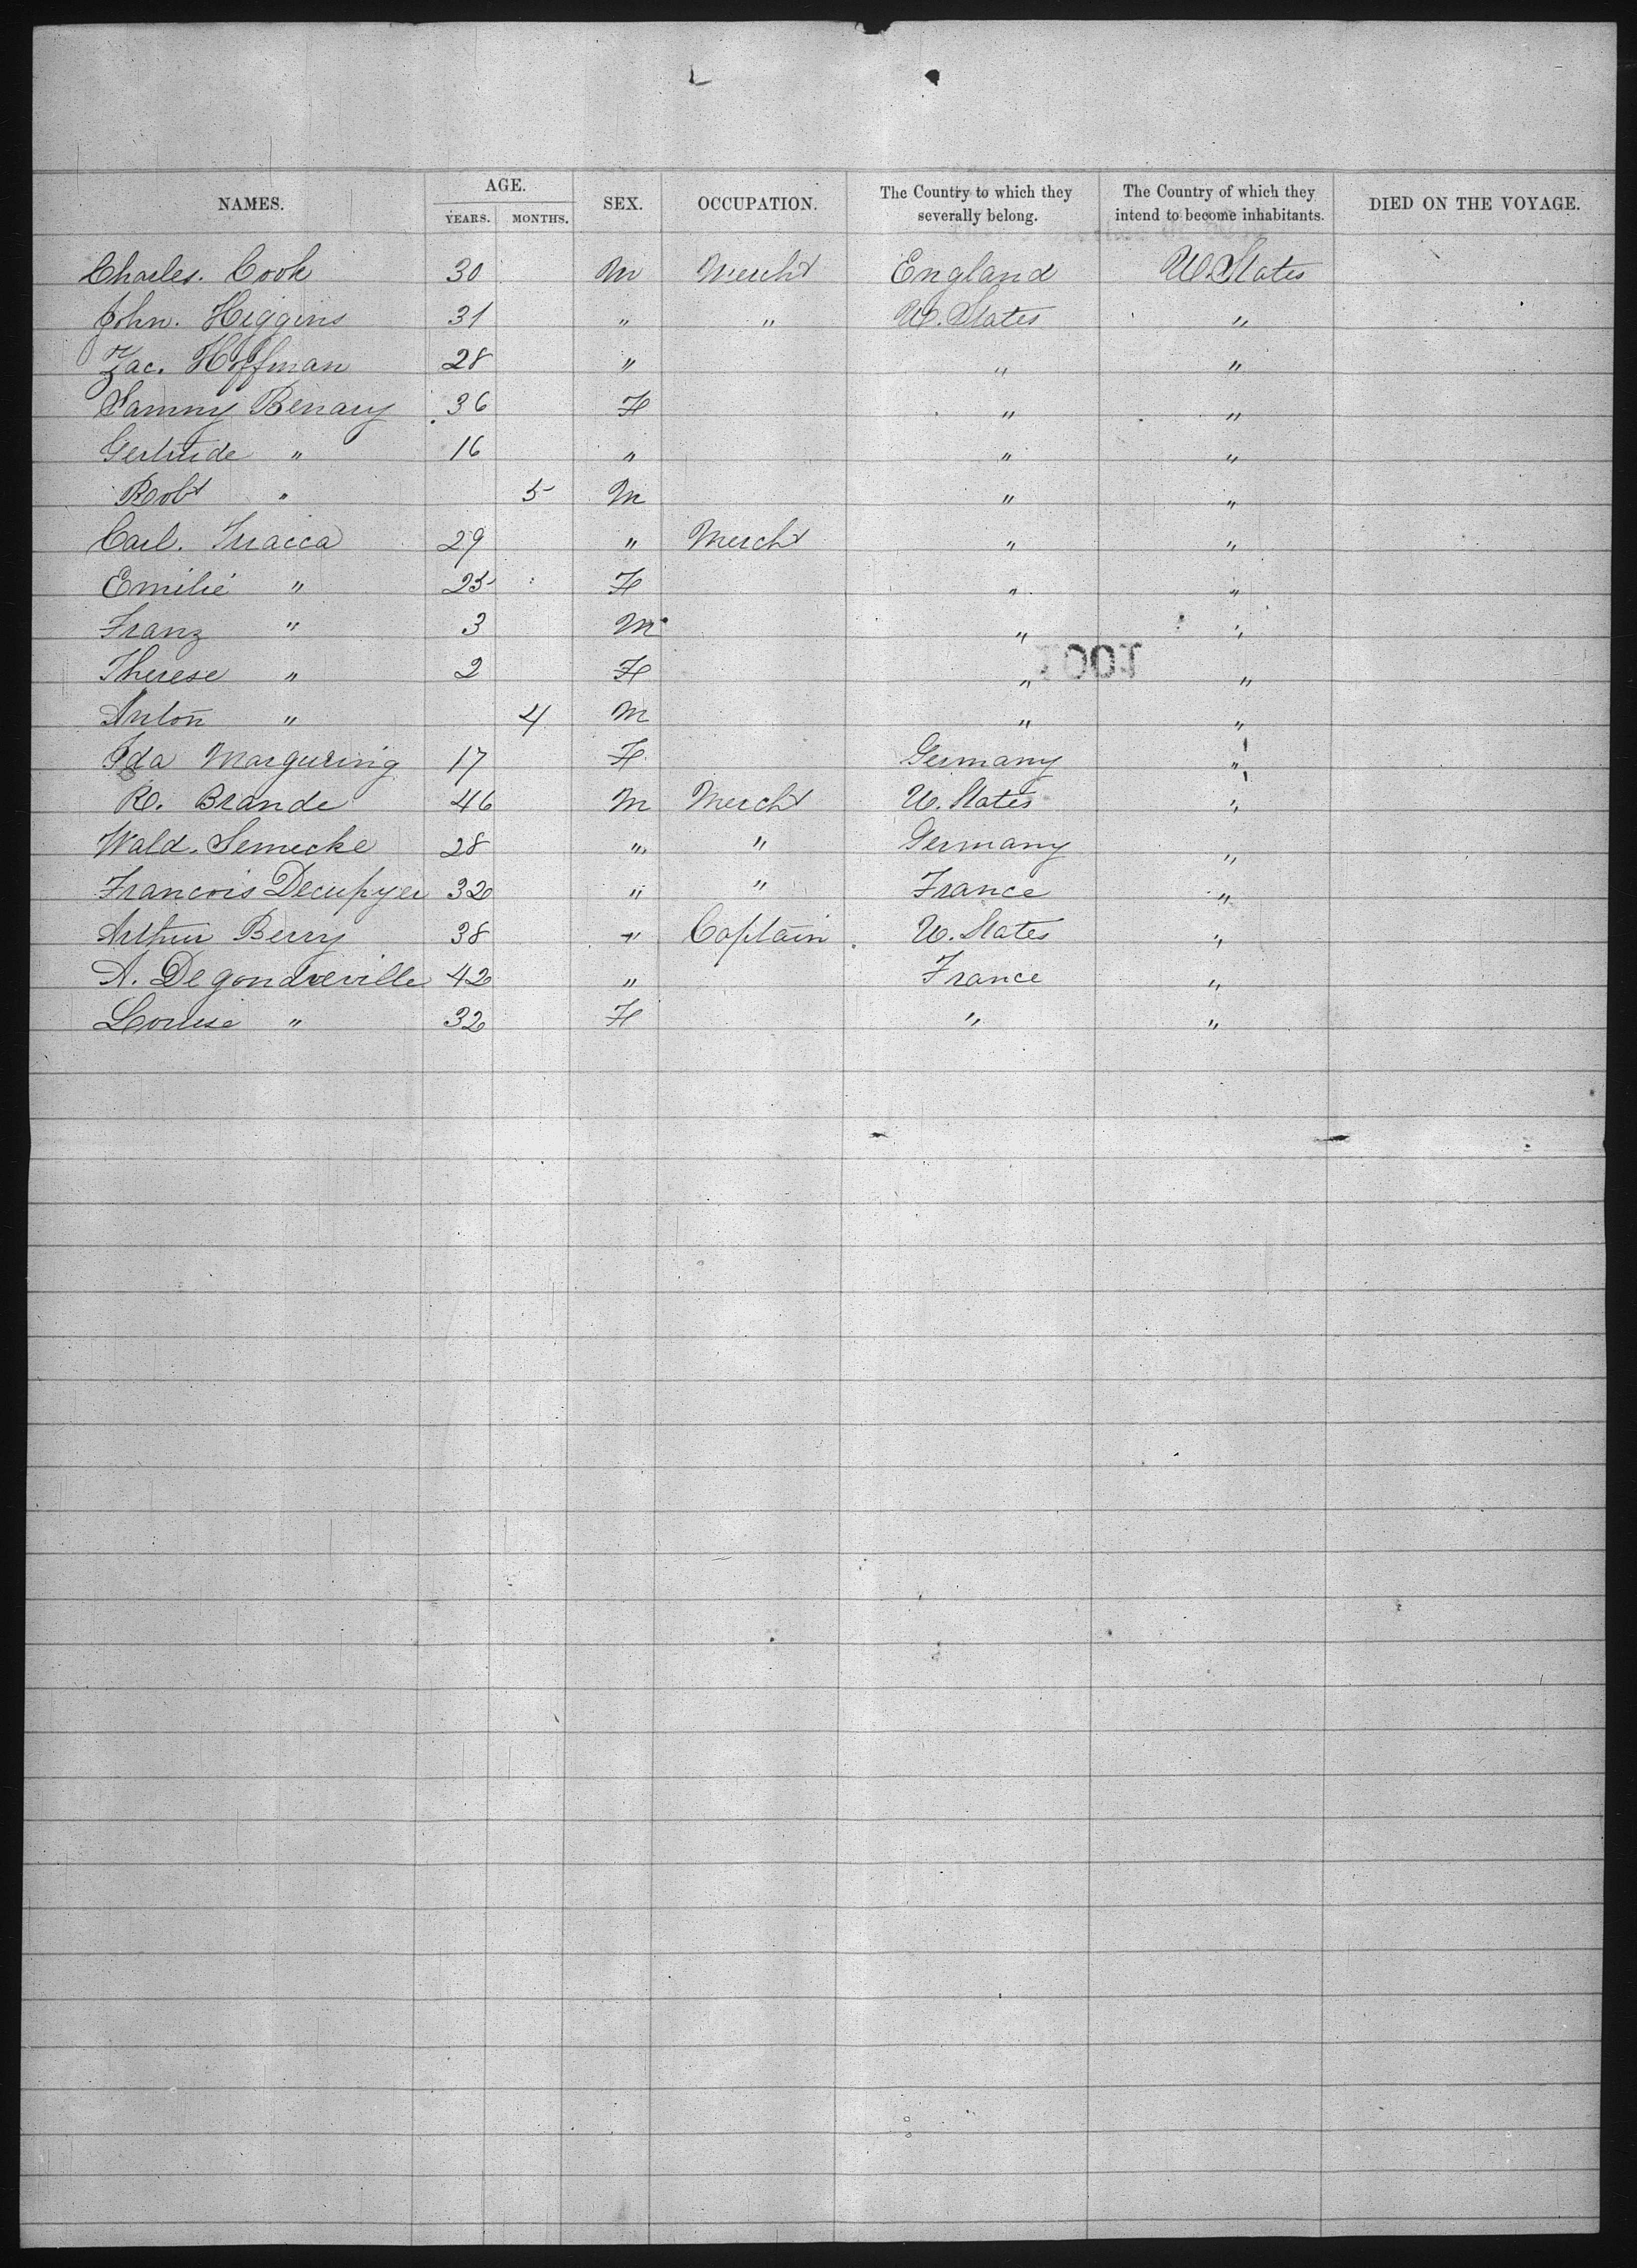 NAMES. AGE. YEARS. MONTHS. SEX. OCCUPATION. The Country to which they severally belong. The Country of which they intend to become inhabitants. DIED ON THE VOYAGE.
Charles. Cook 30 M Mercht England U. States
John. Higgins 31 " " U. States "
Zac. Hoffman 28 " " "
Sammy Benary 36 F " "
Gertrude " 16 " " "
Robt " 5 M " "
Carl. 29 " Mercht " "
Emilie " 25 F " "
Franz " 3 M " "
Therese " 2 F " "
Anton " 4 M " "
Ida Marguring 17 F Germany "
R. Brande 46 M Mercht U. States "
Wald. Semecke 28 " " Germany "
Francois Decupyer 32 " " France "
Arthur Berry 38 " Captain U. States "
A. Degondreville 42 " France "
Louise " 32 F " "